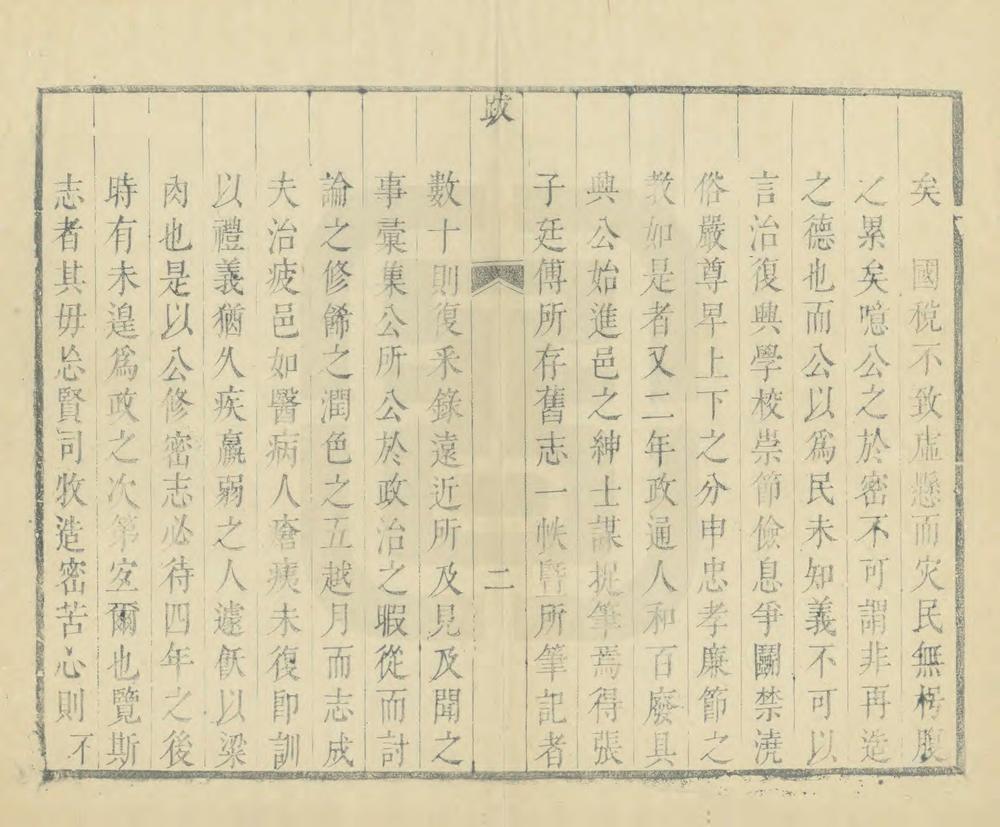 矣　國稅不致虛懸而灾民無枵腹
之累矣噫公之於密不可謂非再造
之德也而公以爲民未知義不可以
言治復興學校崇節儉息爭鬭禁澆
俗嚴尊卑上下之分申忠孝廉節之
教如是者又二年政通人和百廢具
興公始進邑之紳士謀捉筆焉得張
子廷傅所存舊志一帙暨所筆記者
跋
二
數十則復釆錄遠近所及見及聞之
事彚集公所公於政治之暇從而討
論之修餙之潤色之五越月而志成
夫治疲邑如醫病人瘡痍未復即訓
以禮義猶久疾羸弱之人遽飫以粱
肉也是以公修密志必待四年之後
時有未遑爲政之次第宜爾也覽斯
志者其毋忘賢司牧造密苦心則不